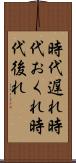 時代遅れ時
代おくれ時
代後れ